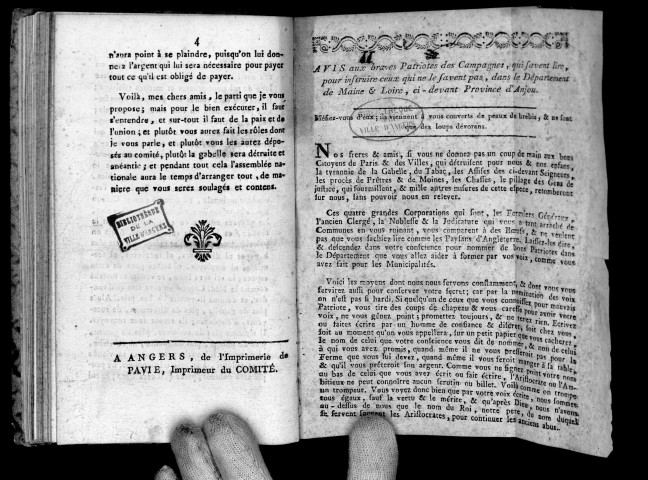 4
n'aura point à se plaindre, puisqu'on lui don-
nera l'argent qui lui sera nécessaire pour payer
tout ce qu'il est obligé de payer.
Voilà, mes chers amis, le parti que je vous
propose; mais pour le bien exécuter, il faut
s'entendre, et sur-tout il faut de la paix et de
l'union; et plutôt vous aurez fait les rôles dont
je vous parle, et plutôt vous les aurez dépo-
sés au comité, plutôt la gabelle sera détruite et
anéantie; et pendant tout cela l'assemblée na-
tionale aura le temps d'arranger tout, de ma-
nière que vous serez soulagés et contens.
BIBLIOTHÈQUE
DE LA
VILLE D'ANGERS
A ANGERS, de l'Imprimerie de
PAVIE, Imprimeur du COMITÉ.
AVIS aux braves Patriotes des Campagnes, qui savent lire,
pour instruire ceux qui ne le savent pas, dans le Département
de Maine & Loire, ci-devant Province d'Anjou.
Méfiez-vous d'eux; ils viennent à vous couverts de peaux de brebis, & ne sont
que des loups dévorans.
VILLE D'ANGERS
Nos freres & amis, si vous ne donnez pas un coup de main aux bons
Citoyens de Paris & des Villes, qui détruisent pour nous & nos enfans,
la tyrannie de la Gabelle, du Tabac, les Assises des ci-devant Seigneurs,
les procès de Prêtres & de Moines, les Chasses, le pillage des Gens de
justice, qui fourmillent, & mille autres miseres de cette espece, retomberont
sur nous, sans pouvoir nous en relever.
Ces quatre grandes Corporations qui sont, les Fermiers Généraux,
l'ancien Clergé, la Noblesse & la Judicature qui vous a tant arraché de
Communes en vous ruinant, vous comparent à des Bœufs, & ne veulent
pas que vous sachiez lire comme les Paysans d'Angleterre. Laissez-les dire,
& descendez dans votre conscience pour nommer de bons Patriotes dans
le Département que vous allez aider à former par vos voix, comme vous
avez fait pour les Municipalités.
Voici les moyens dont nous nous servons constamment, & dont vous vous
servirez aussi pour conserver votre secret; car par la nomination des voix
on n'est pas si hardi. Si quelqu'un de ceux que vous connoissez pour mauvais
Patriote, vous tire des coups de chapeau & vous caresse pour avoir votre
voix, ne vous gênez point; promettez toujours, & ne tenez rien. Ecrivez
ou faites écrire par un homme de confiance & discret, soit chez vous,
soit au moment qu'on vous appellera, sur un petit papier que vous cacherez,
le nom de celui que votre conscience vous dit de nommer, & non de celui
à qui vous avez promis, quand même il ne vous presseroit pas pour la
Ferme que vous lui devez, quand même il vous feroit manger à sa table,
& qu'il vous prêteroit son argent. Comme vous ne signez point votre nom
au bas de celui que vous avez écrit ou fait écrire, l'Aristocrate ou l'Am-
bitieux ne peut connoître aucun scrutin ou billet. Voilà comme on trompe
un trompeur. Vous voyez donc bien que par votre voix écrite, nous sommes
tous égaux, sauf la vertu & le mérite, & qu'après Dieu, nous n'avons
au-dessus de nous que le nom du Roi, notre pere, du nom duquel
se servent souvent les Aristocrates, pour continuer les anciens abus.